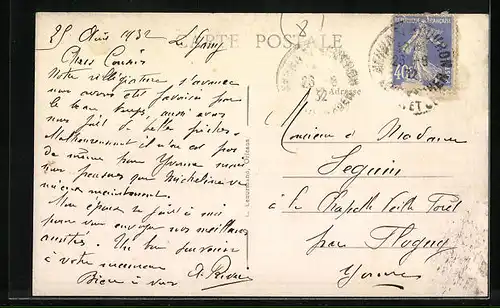 25 Août 1932 Le Gavy
CARTE POSTALE
Chers Cousins
Notre villégiature s'avance
nous avons été favorisés par
le beau temps, aussi avons
nous fait de belles pêches.
Malheureusement il n'en est pas
de même pour Yvonne nous
pensons que Micheline va
mieux maintenant.
Mon épouse se joint à moi
pour vous envoyer nos meilleures
amitiés. Un bon souvenir
à votre maman
Bien à vous
Adresse
RÉPUBLIQUE FRANÇAISE
40
26 8
32
Monsieur et Madame
Seguin
à la Chapelle Vieille Forêt
par Flogny
Yonne